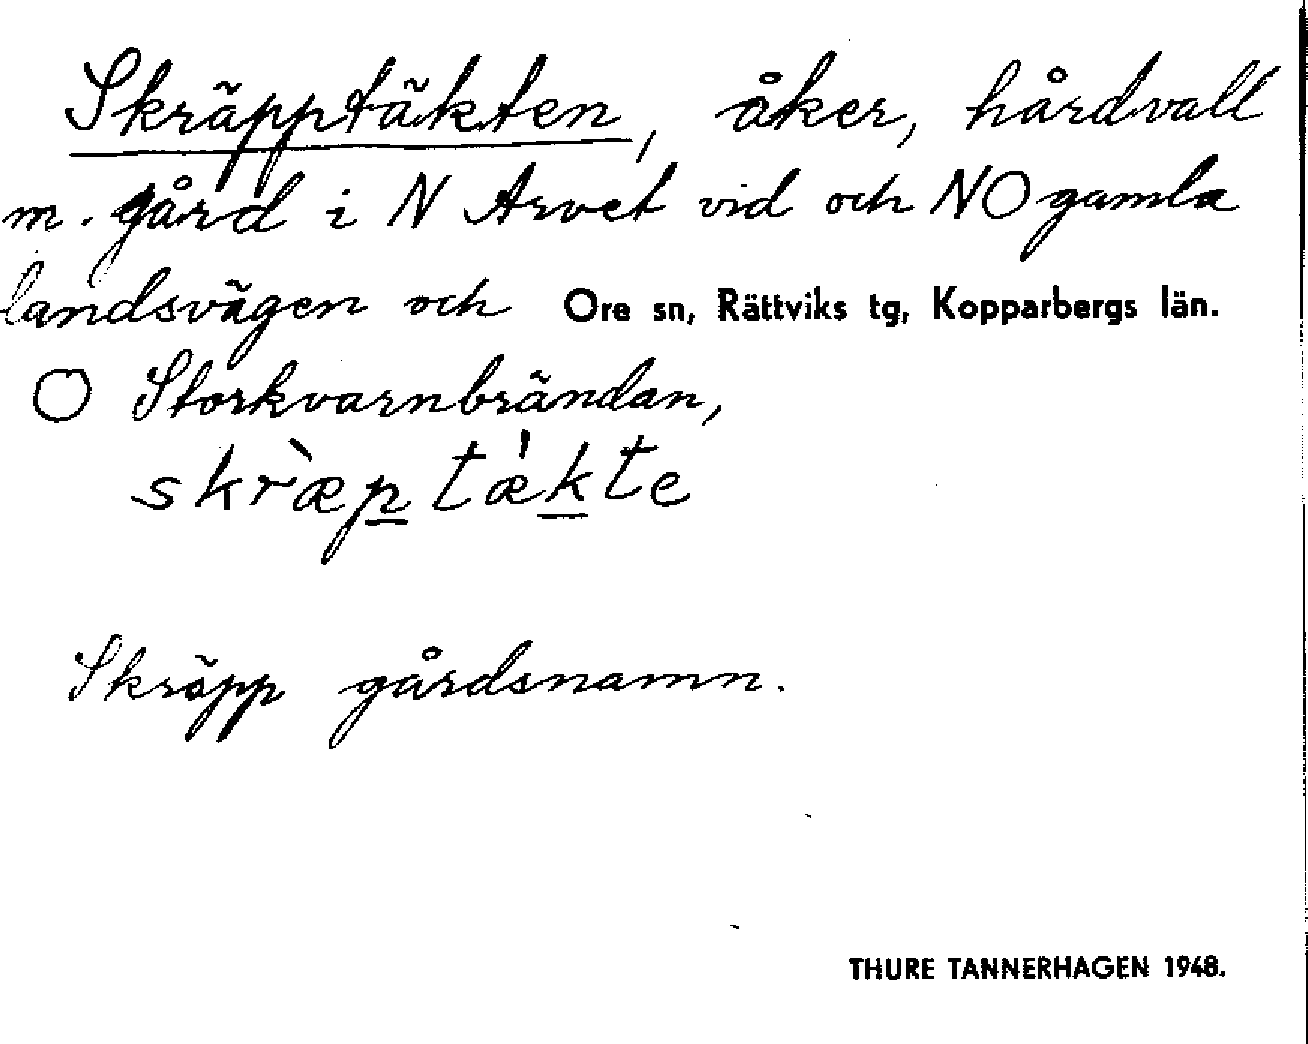 Skräpptäkten, åker, hårdvall
m. gård i N Arvet vid och NO gamla
landsvägen och Ore sn, Rättviks tg, Kopparbergs län.
O Storkvarnbrändan,
skræ̀p tæ̀kte
Skräpp gårdsnamn.
THURE TANNERHAGEN 1948.